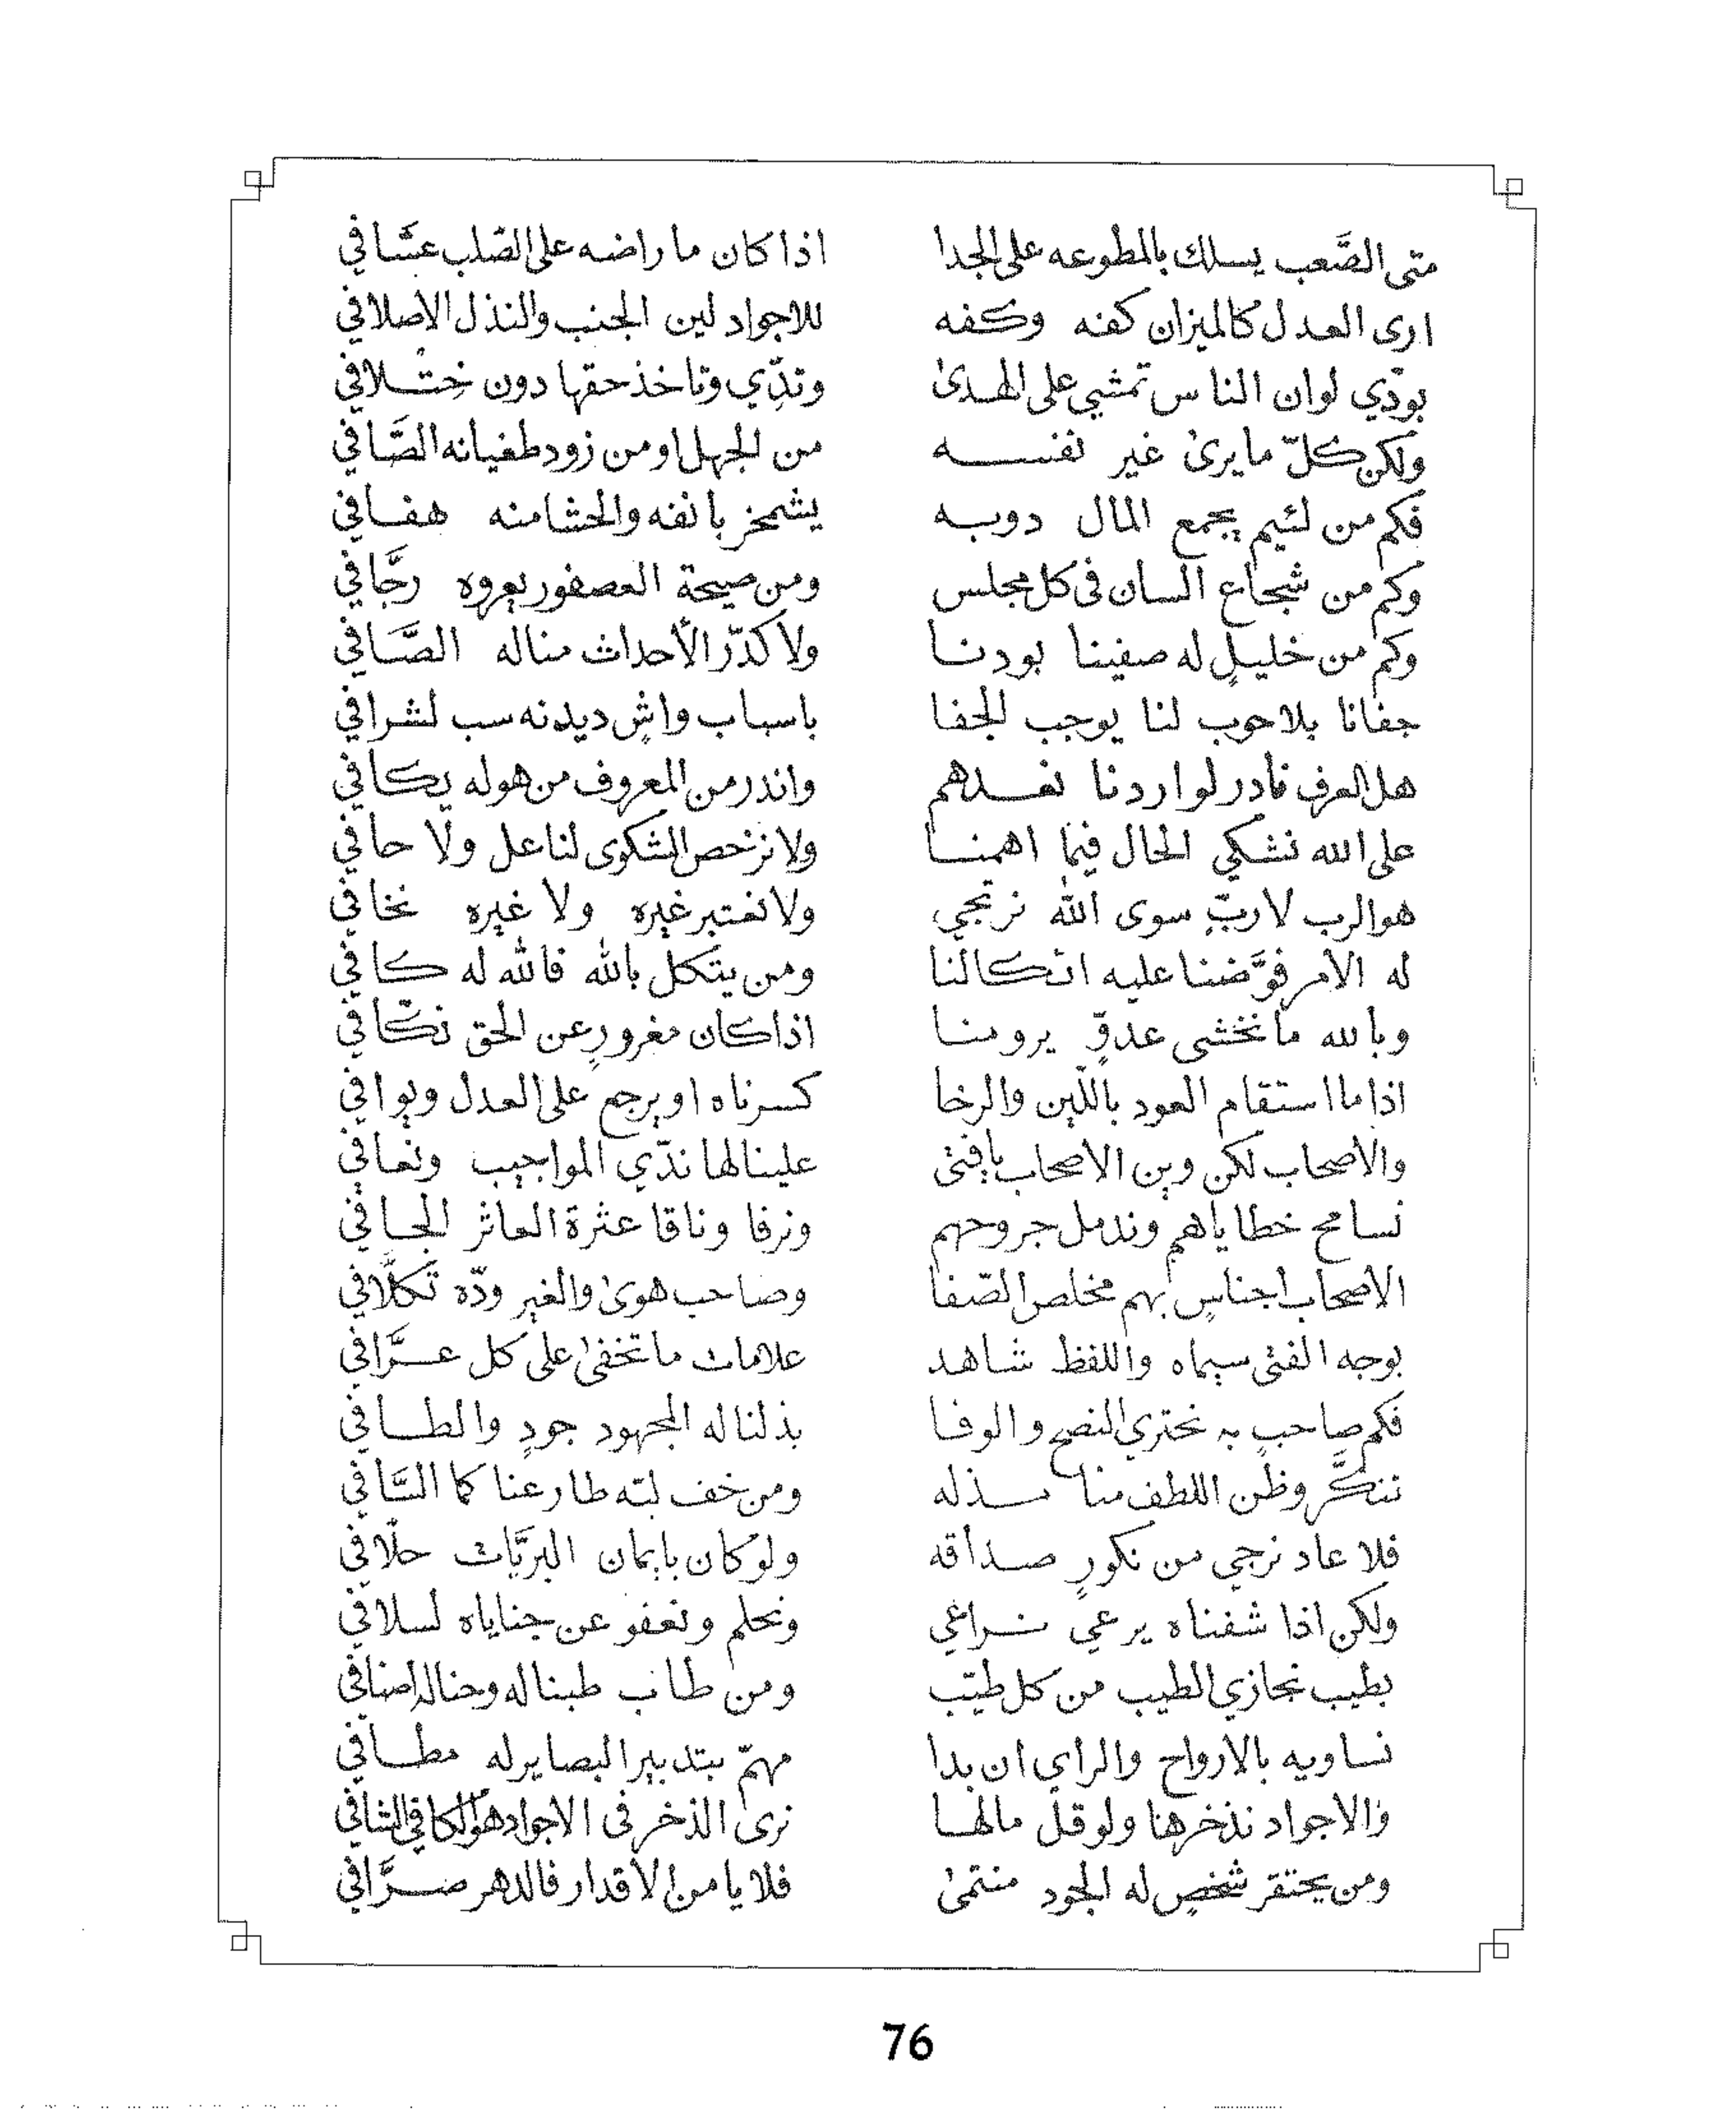 متى الصَّعب يسلك بالمطوعه على الجدا اذا كان ما راضه على الصّلب عسَّافي
ارى العدل كالميزان كفه وكفه للاجواد لين الجنب والنذل الأصلافي
بودّي لوان الناس تمشي على الهدىٰ وتدّي وتاخذ حقها دون خِتْلافي
ولكن كلّ ما يرىٰ غير نفسه من الجهل اومن زود طغيانه الصَّافي
فكم من لئيم يجمع المال دوبه يشمخر بانفه والحشا منه هفافي
وكم من شجاع السان فى كل مجلس ومن صيحة العصفور يعروه رجَّافي
وكم من خليلٍ له صفينا بودنا ولا كدّر الأحداث مناله الصَّافي
جفانا بلا حوب لنا يوجب الجفا باسباب واشٍ ديدنه سب لشرافي
هل العرف نادر لو اردنا نعدهم واندر من المعروف من هوله يكافي
على الله نشكي الحال فيما اهمنا ولا نرخص الشكوى لنا عل ولا حافي
هو الرب لا ربٍّ سوى الله نرتجي ولا نعتبر غيره ولا غيره نخافي
له الأمر فوَّضنا عليه اتكالنا ومن يتكل بالله فالله له كافي
وبالله ما نخشى عدوٍّ يرومنا اذا كان مغرورٍ عن الحق نكَّافي
اذا ما استقام العود باللّين والرخا كسرناه او يرجع على العدل ويوافي
والاصحاب لكن وين الاصحاب يافتى علينا لها ندّي المواجيب ونعافي
نسامح خطاياهم وندمل جروحهم ونرفا وناقا عثرة العاثر الجافي
الاصحاب اجناسٍ بهم مخلص الصّفا وصاحب هوىٰ والغير ودّه تكلَّافي
بوجه الفتى سيماه واللفظ شاهد علامات ما تخفىٰ على كل عرَّافي
فكم صاحبٍ به نحتري النصح والوفا بذلنا له المجهود جودٍ والطافي
تنكَّر وظن اللطف منا مذله ومن خف لبّه طار عنا كما السَّافي
فلا عاد نرجي من نكورٍ صداقه ولو كان بايمان البريَّات حلّافي
ولكن اذا شفناه يرعي نراعي ونحلم ونعفو عن جناياه لسلافي
بطيب نجازي الطيب من كل طيّب ومن طاب طبنا له وحنا له
نساويه بالارواح والراي ان بدا مهمّ بتدبير البصاير له مطافي
والاجواد نذخرها ولو قلّ مالها نرى الذخر فى الاجواد هو الكافي الشافي
ومن يحتقر شخصٍ له الجود منتمىٰ فلا يامن الأقدار فالدهر صرَّافي
76